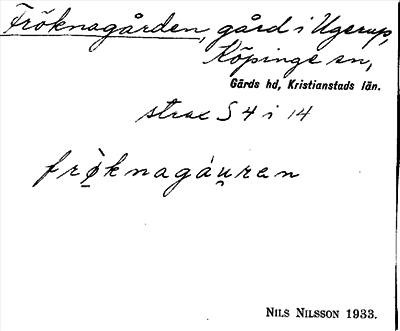 Fröknagården, gård i Ugerup,
Köpinge sn,
Gärds hd, Kristianstads län.
strax S 4 i 14
frø̀knagáu̯ran
NILS NILSSON 1933.